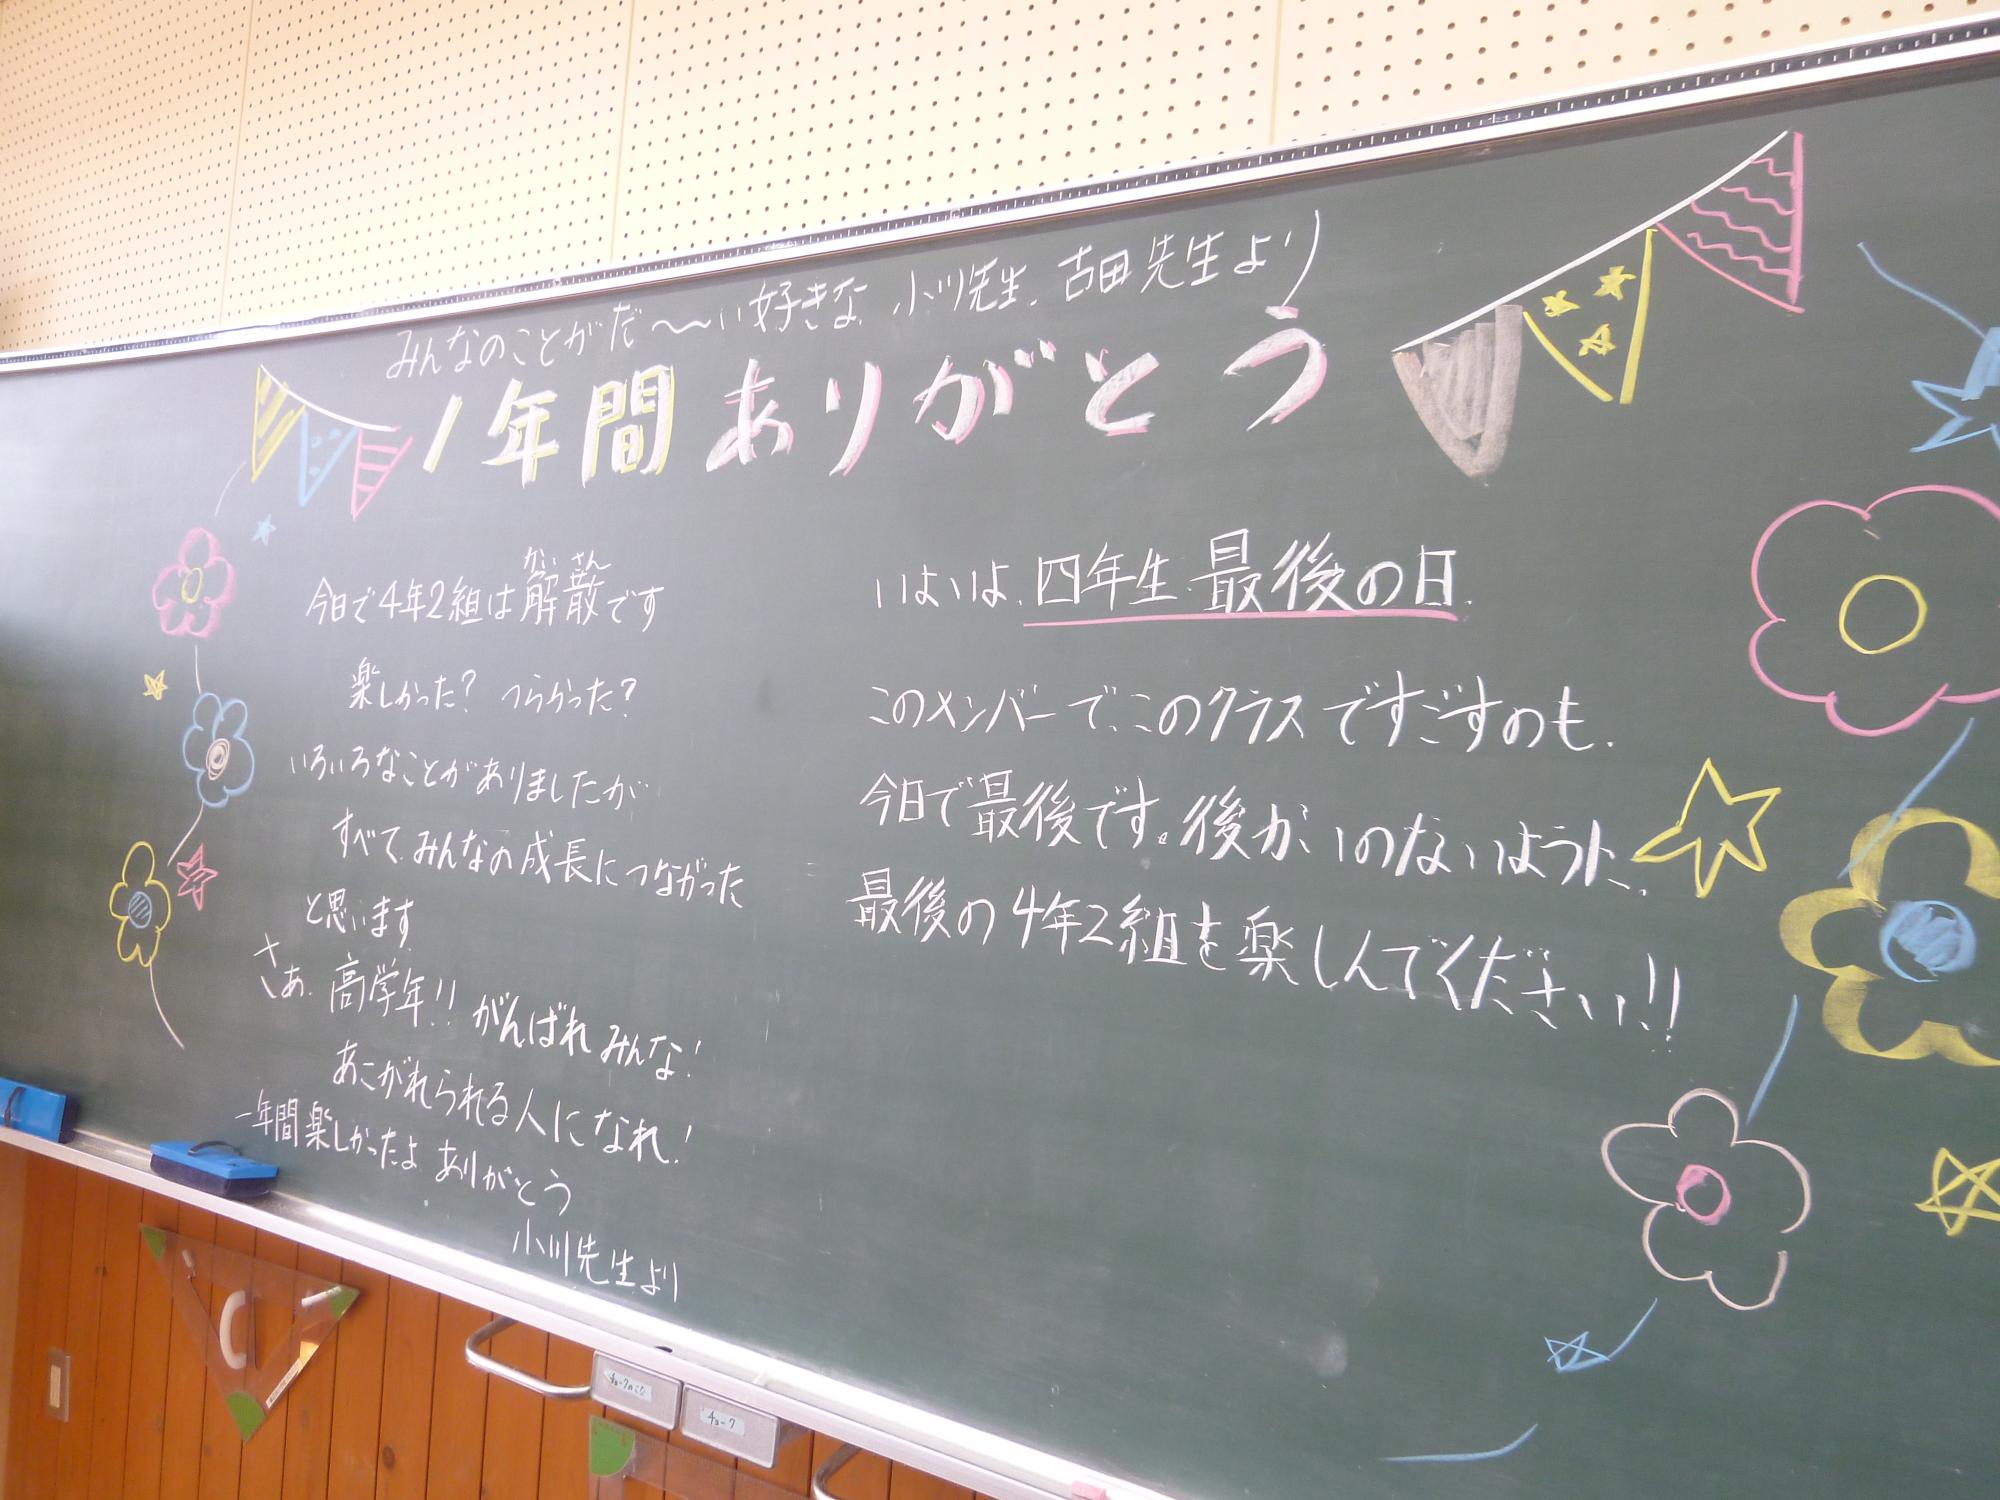 みんなのことがだ〜い好きな 小川先生、古田先生より
1年間ありがとう
かいさん
今日で4年2組は解散です
楽しかった? つらかった?
いろいろなことがありましたが
すべて、みんなの成長につながった
と思います
さぁ、高学年!! がんばれ みんな!
あこがれられる人になれ!
一年間楽しかったよ ありがとう
小川先生より
いよいよ、四年生 最後の日。
このメンバーで、このクラスですごすのも、
今日で最後です。後かいのないように、
最後の4年2組を楽しんでください!!
チョークのこな
チョーク